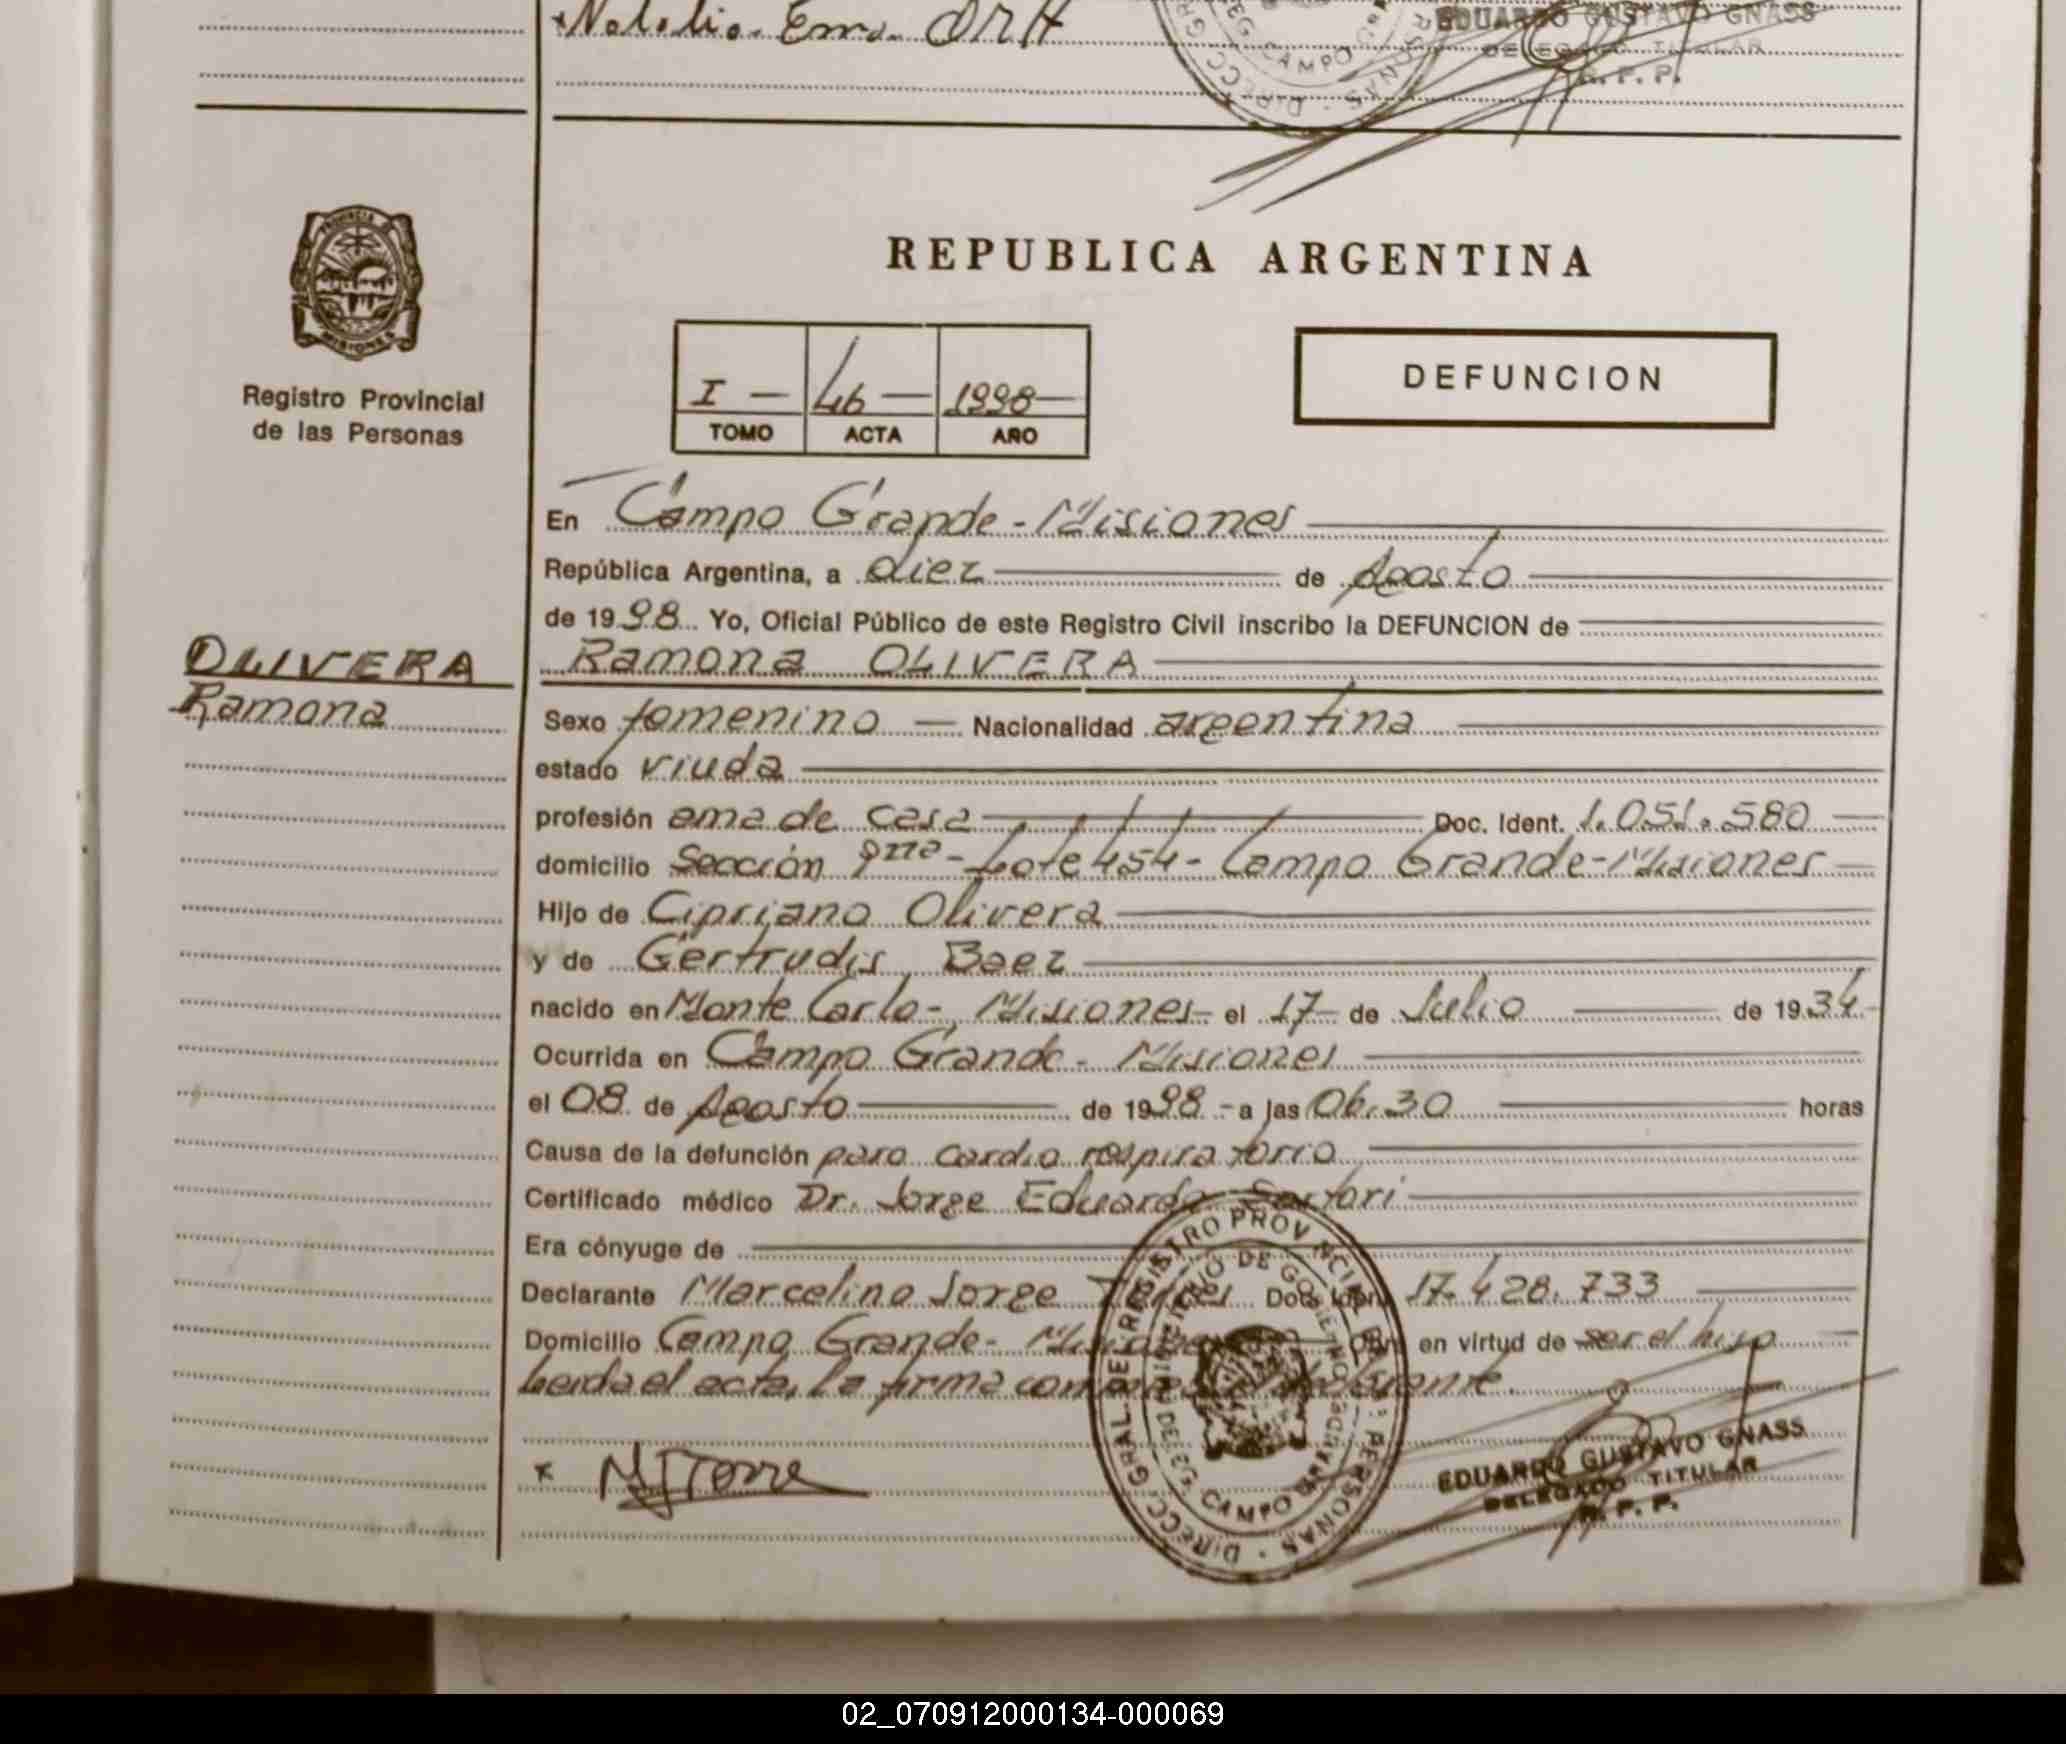 *Natalia Ema ORH
EDUARDO GUSTAVO GNASS
DELEGADO TITULAR
R. P. P.
CAMPO GRANDE
PROVINCIA DE
MISIONES
REPUBLICA ARGENTINA
Registro Provincial
de las Personas
I - 46 - 1998 -
TOMO ACTA AÑO
DEFUNCION
En Campo Grande - Misiones
República Argentina, a diez de Agosto
de 1998 Yo, Oficial Público de este Registro Civil inscribo la DEFUNCION de
OLIVERA
Ramona
Ramona OLIVERA
Sexo femenino - Nacionalidad argentina
estado viuda
profesión ama de casa Doc. Ident. 1.051.580
domicilio Sección 9na - Lote 454 - Campo Grande - Misiones
Hijo de Cipriano Olivera
y de Gertrudis Baez
nacido en Monte Carlo - Misiones - el 17 - de Julio de 1934 -
Ocurrida en Campo Grande - Misiones
el 08 de Agosto de 1998 - a las 06.30 horas
Causa de la defunción paro cardio respiratorio
Certificado médico Dr. Jorge Eduardo Sartori
Era cónyuge de
Declarante Marcelino Jorge Doc. Ident. 17.428.733
Domicilio Campo Grande - Misiones Obra en virtud de ser el hijo
Leida el acta, la firma conmigo el declarante.
x MJTorre
DIRECC. GRAL. DE REGISTRO PROVINCIAL DE PERSONAS
MINISTERIO DE GOBIERNO
CAMPO GRANDE
EDUARDO GUSTAVO GNASS
DELEGADO TITULAR
R. P. P.
02_070912000134-000069